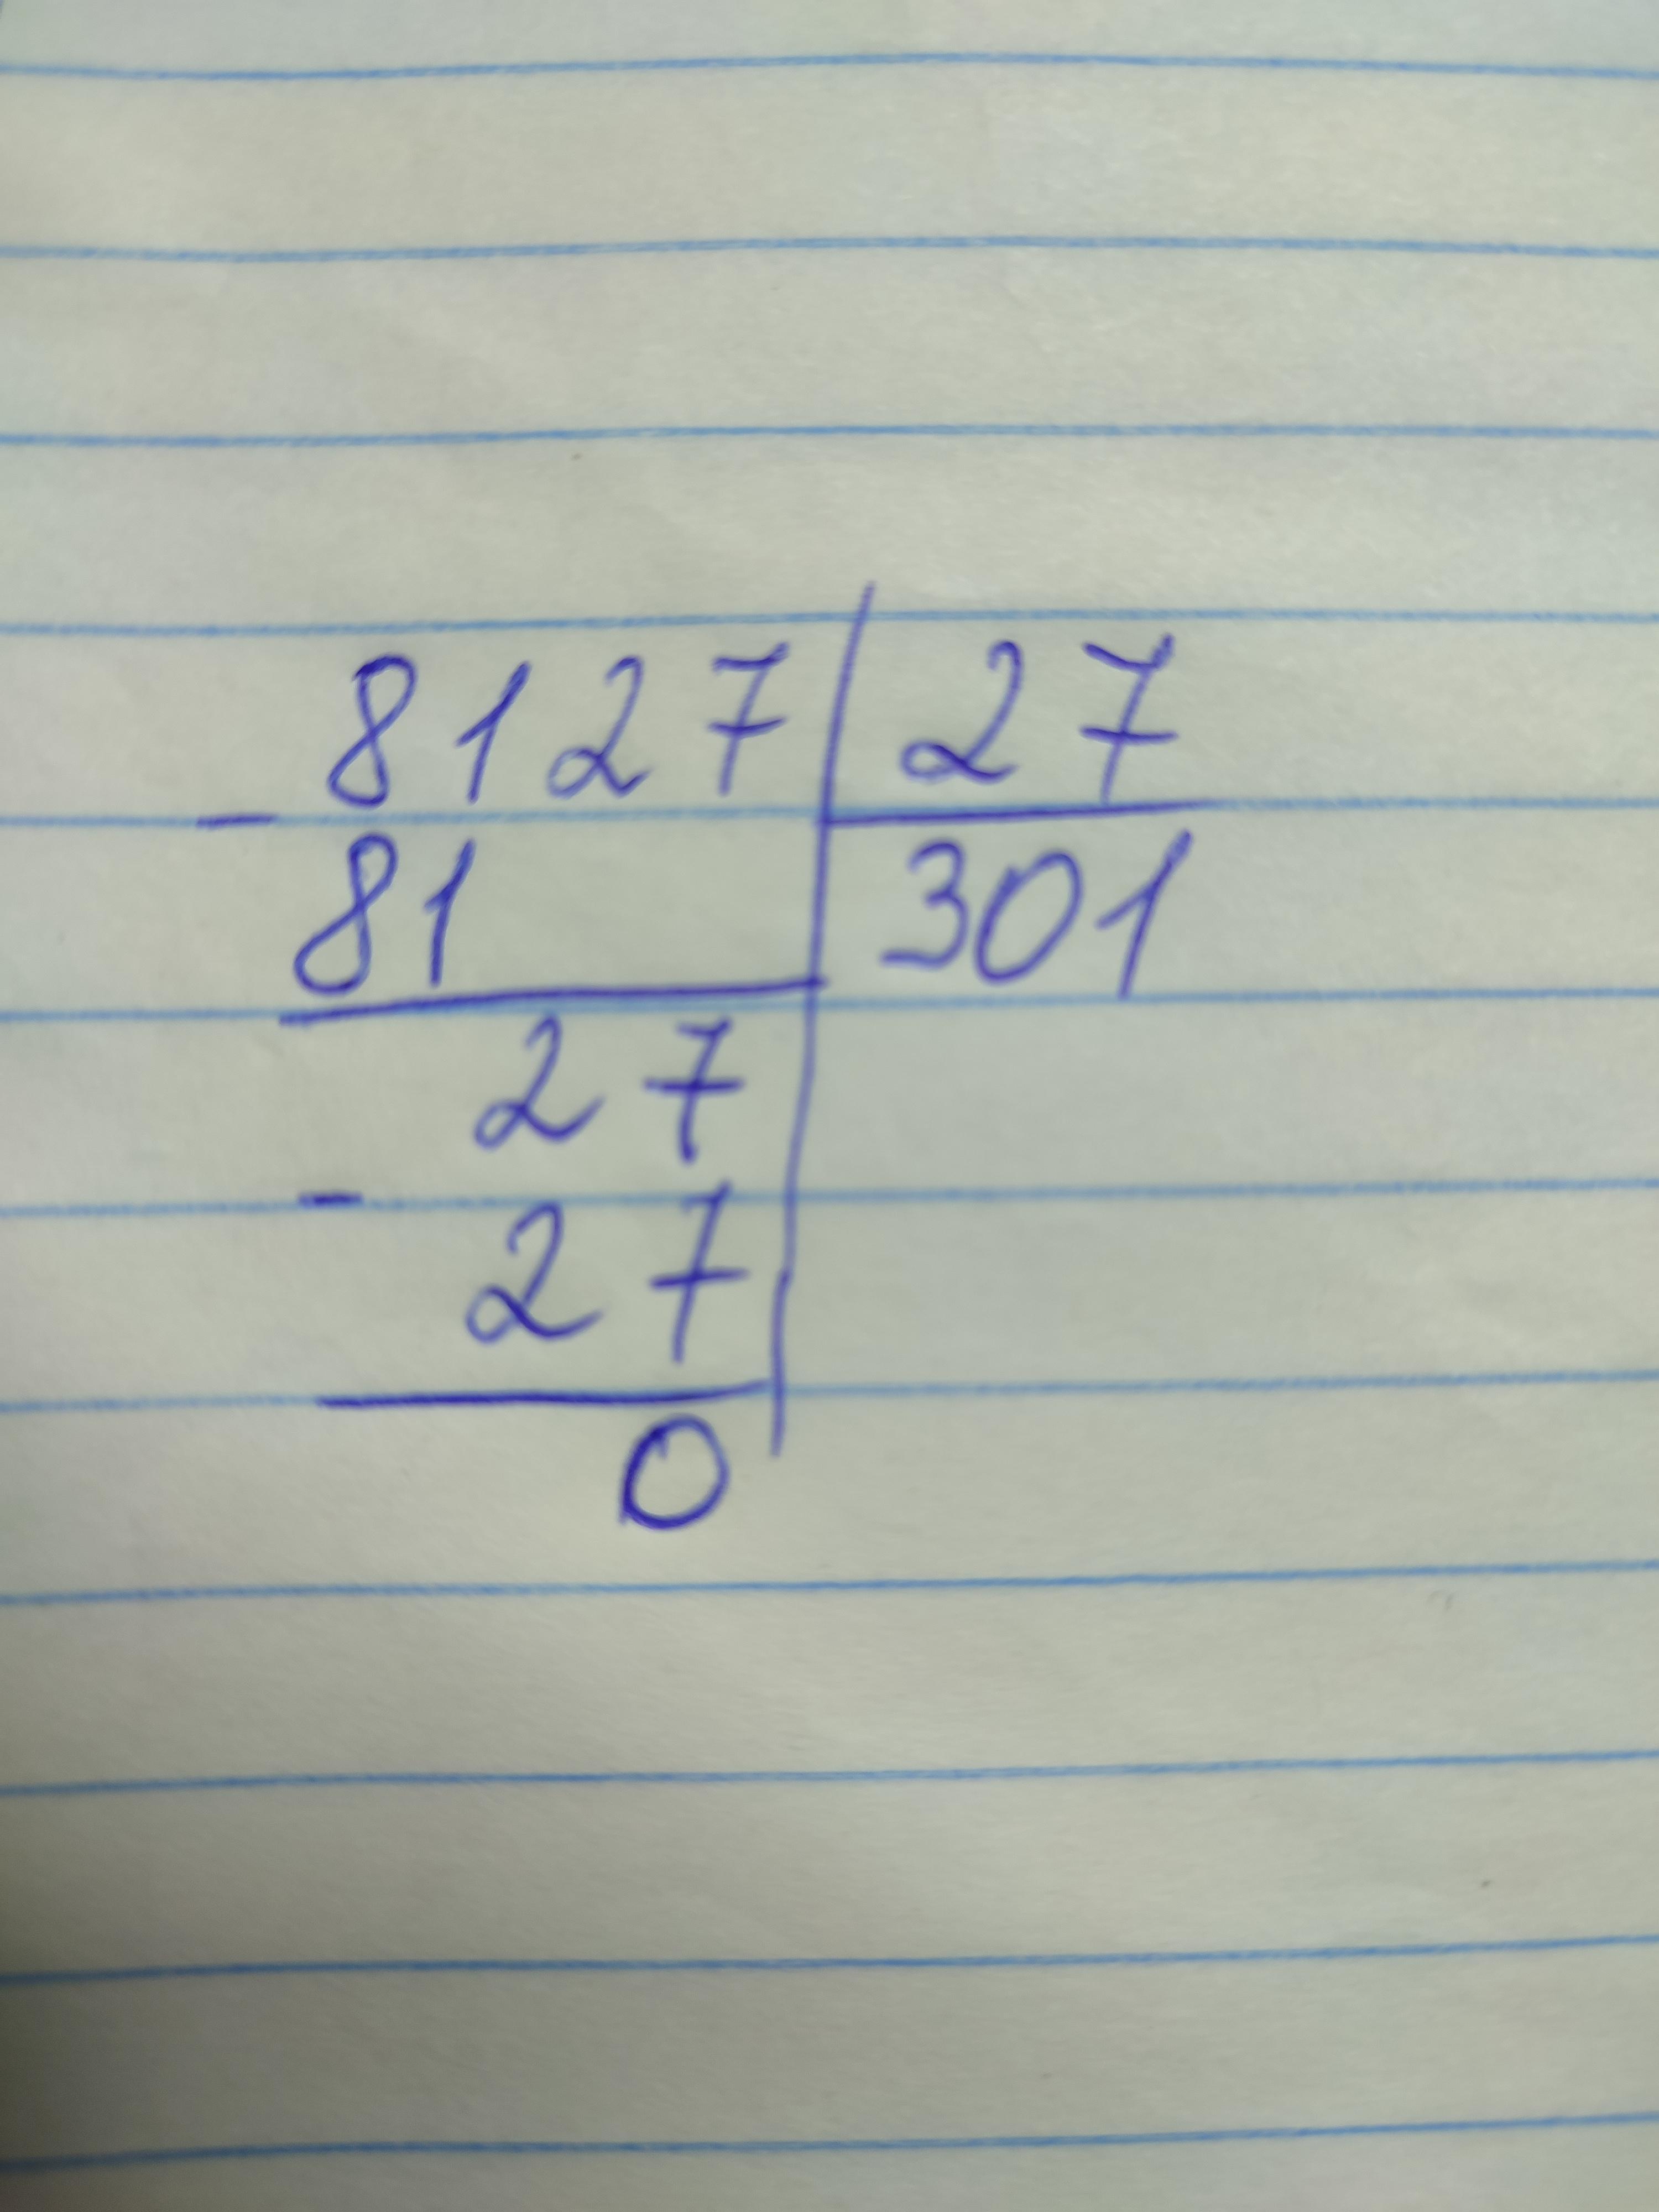 8127 | 27
- 81 | 301
27
- 27
0